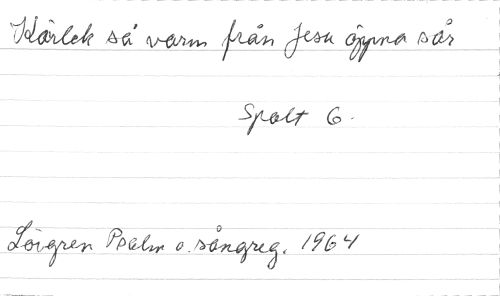 Kärlek så varm från Jesu öppna sår
Spalt 6.
Lövgren Psalm o. sångreg. 1964